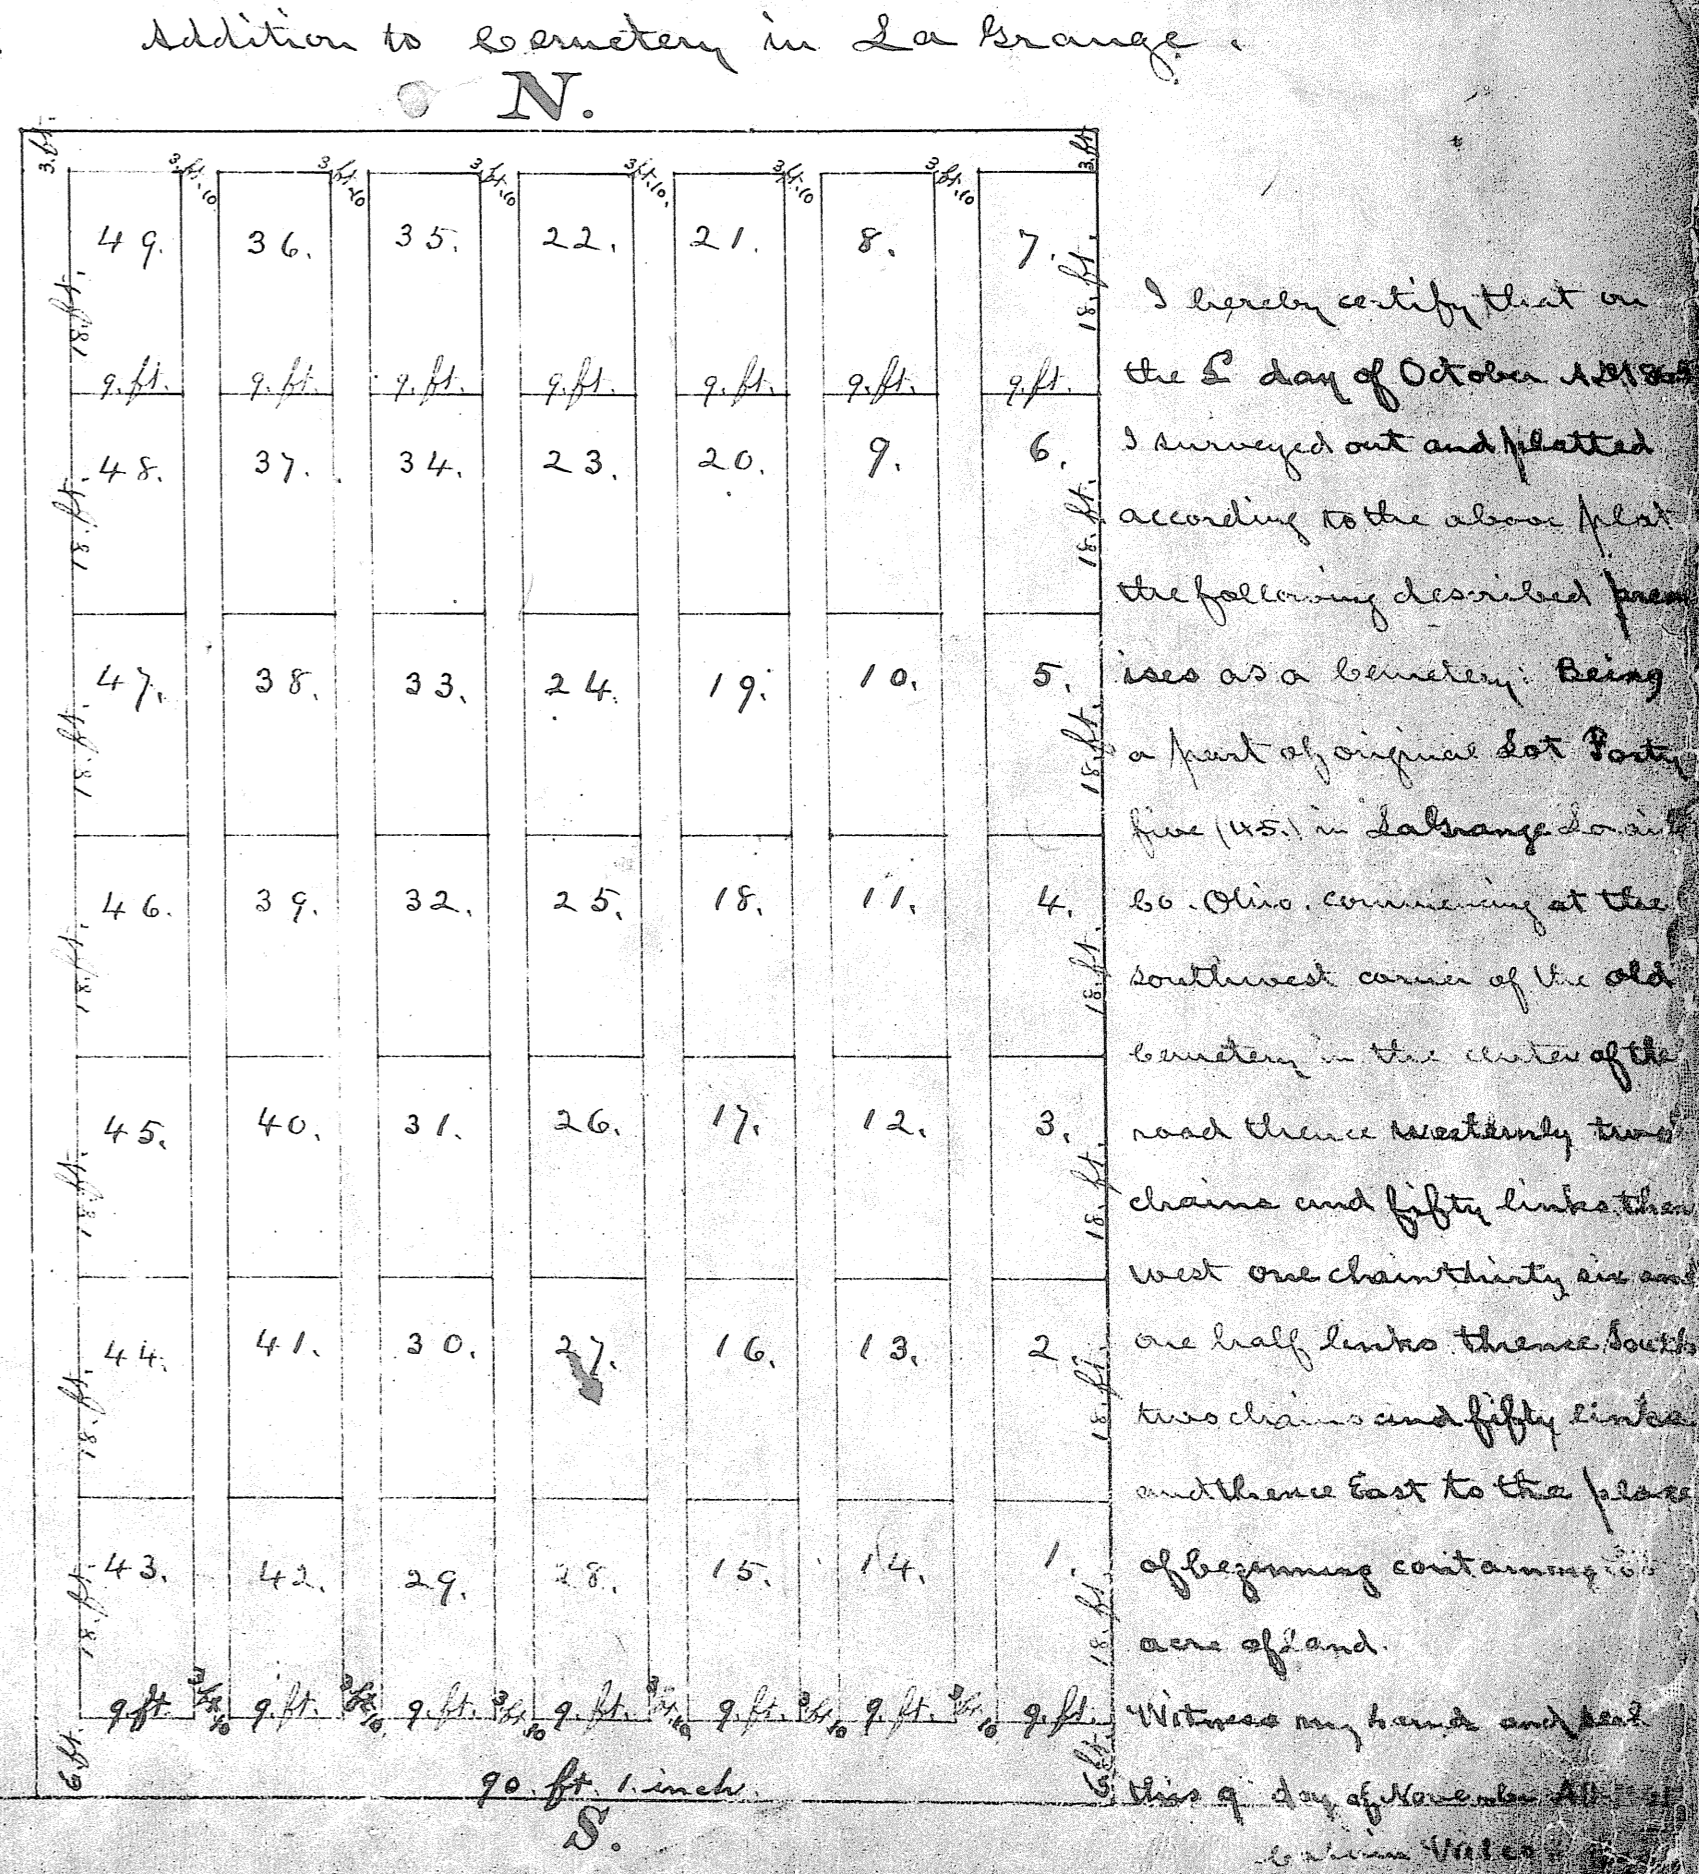 Addition to Cemetery in La Grange.
N.
3.ft. 3.ft.10 3.ft.10 3.ft.10 3.ft.10. 3.ft.10 3.ft.10 3ft
49. 36. 35. 22. 21. 8. 7.
18.ft. 18.ft.
9.ft. 9.ft. 9.ft. 9.ft. 9.ft. 9.ft. 9.ft.
48. 37. 34. 23. 20. 9. 6.
18.ft. 18.ft.
47. 38. 33. 24. 19. 10. 5.
18.ft. 18.ft.
46. 39. 32. 25. 18. 11. 4.
18.ft. 18.ft.
45. 40. 31. 26. 17. 12. 3.
18.ft. 18.ft.
44. 41. 30. 27. 16. 13. 2
18.ft. 18.ft.
43. 42. 29. 28. 15. 14. 1.
18.ft. 18.ft.
9.ft 3ft.10 9.ft. 3ft.10 9.ft. 3ft.10 9.ft. 3ft.10 9.ft. 3ft.10 9.ft. 3ft.10 9.ft.
6.ft. 90.ft. 1.inch. 6.ft.
S.
I hereby certify that on
the day of October A.D.
I surveyed out and platted
according to the above plat
the following described prem
ises as a Cemetery: Being
a part of original Lot Forty
five (45.) in LaGrange Lorain
Co. Ohio. commencing at the
southwest corner of the old
Cemetery in the center of the
road thence westernly two
chains and fifty links then
west one chain thirty six and
one half links thence South
two chains and fifty links
and thence East to the place
of beginning containing
acre of Land.
Witness my hand and seal
this 9 day of November AD
Calvin Wilcox